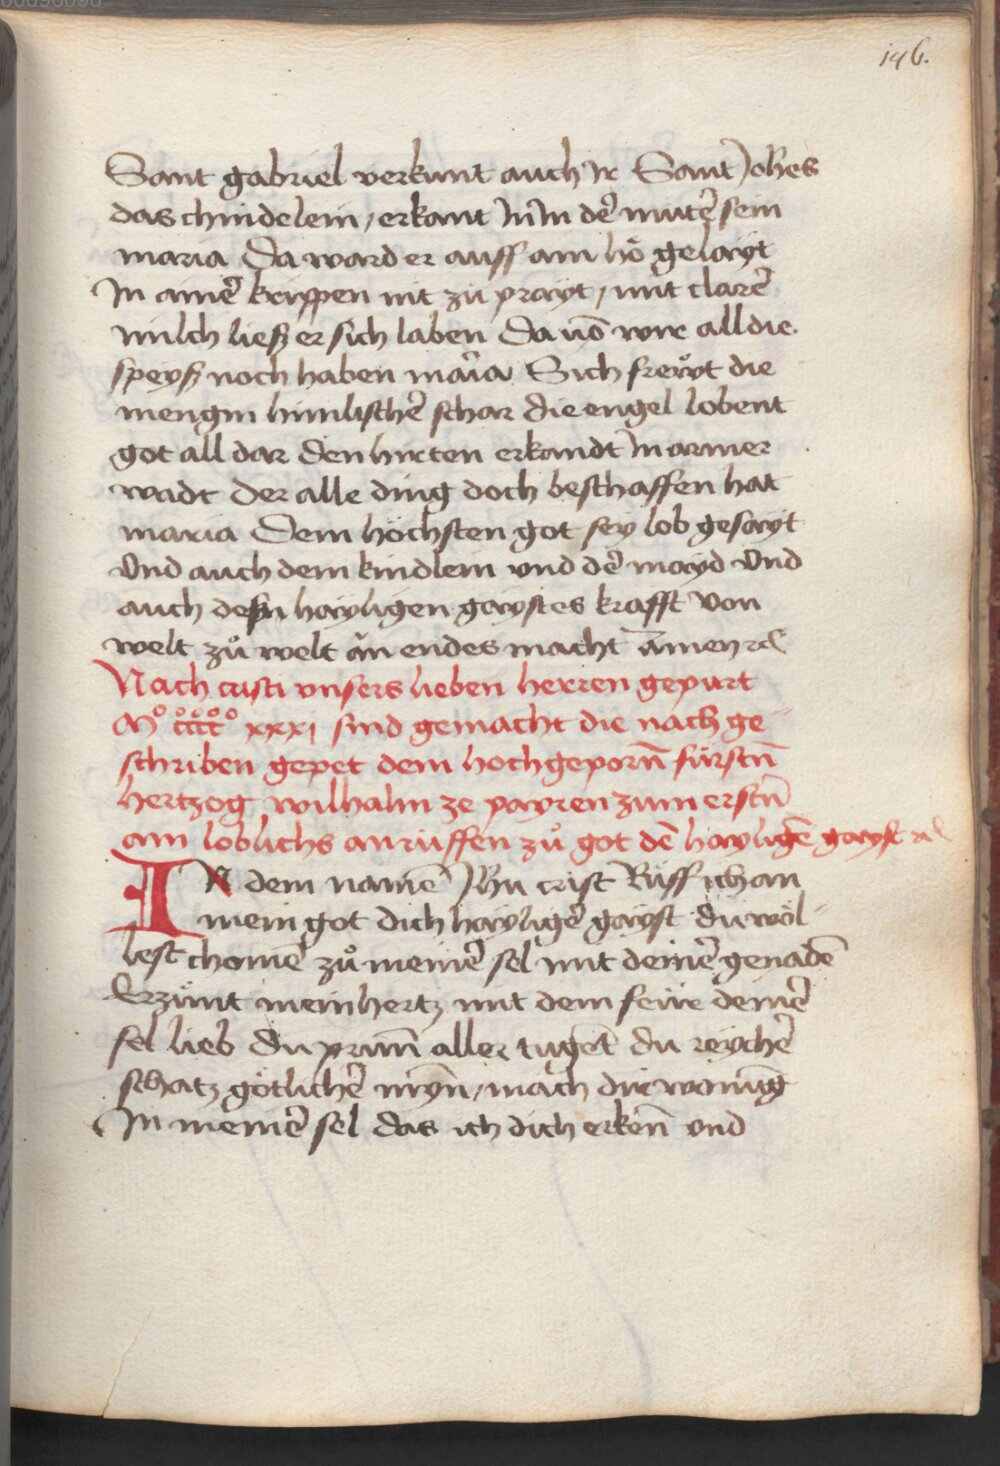 146.
Sant gabriel verkunt auch Ir Sant Joh̄es
das chindelein / erkant In̄ In der̄ muter̄ sein
maria Da ward er auff ain hö gelayt
In ainer̄ krippen nit zu prayt / mit clarer̄
milch liesz er sich laben Da uō wir all die
speysz noch haben maria Sich frewt die
mengin himlischer̄ schar die engel lobent
got all dar den hirten erkandt In armer
wadt Der alle ding doch beschaffen hat
maria Dem höchsten got sey lob gesayt
vnd auch dem kindlein vnd der̄ mayd vnd
auch desz hayligen gaystes krafft von
welt zů welt an̄ endes macht amen ꝛc
Nach cristi vnsers lieben herren gepurt
Mº ccccº xxxj sind gemacht die nach ge
schriben gepet dem hochgeporn̄ fürstn̄
hertzog wilhalm ze payren zum erstn̄
ain loblichs anrüffen zů got dē hayligē gayst ꝛc
IN dem namē Jh̄u crist Rüff ich an
mein got dich hayliger̄ gayst du wöl
lest chomē zů meiner̄ sel mit deiner̄ genadē
Erzünt mein hertz mit dem feüre deiner̄
sel lieb Du prūn̄ aller tugēt du reycher̄
schatz götlicher̄ myn̄ / mach dir wonūg
In meiner̄ sel das ich dich erkēn̄ vnd